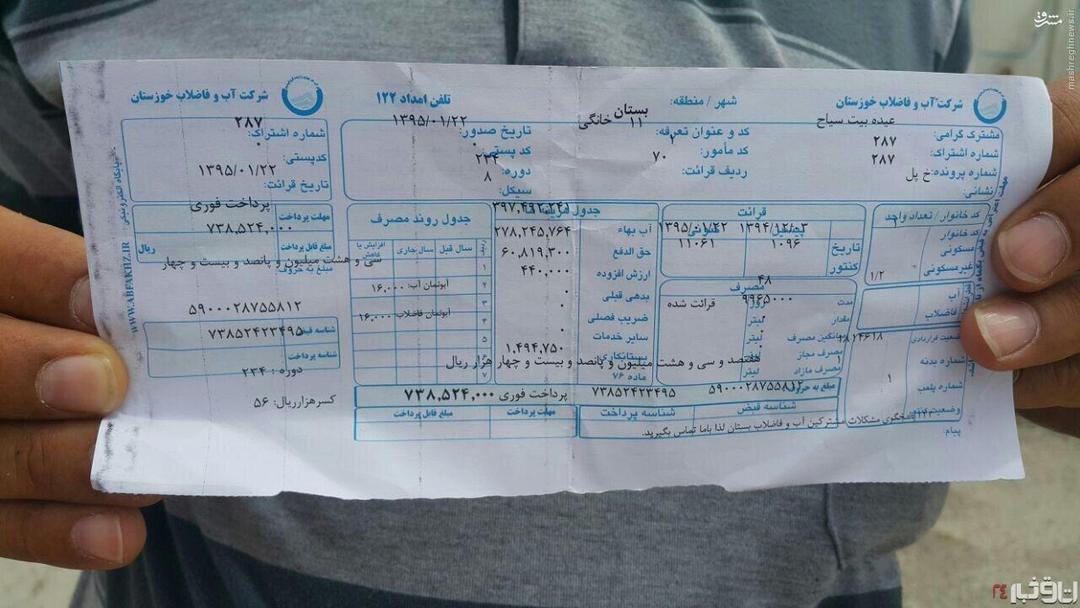 مشرق
mashreghnews.ir
شرکت آب و فاضلاب خوزستان
شهر / منطقه: بستان
تلفن امداد ۱۲۲
شرکت آب و فاضلاب خوزستان
مشترک گرامی: عیده بیت سیاح
شماره اشتراک: ۲۸۷
شماره پرونده: ۲۸۷
نشانی: خ پل
کد و عنوان تعرفه: ۱۱ خانگی
کد مأمور:
ردیف قرائت: ۷۰
تاریخ صدور: ۱۳۹۵/۰۱/۲۲
کد پستی: ۰
دوره: ۲۳۴
سیکل: ۸
شماره اشتراک: ۲۸۷
کدپستی: ۰
تاریخ قرائت: ۱۳۹۵/۰۱/۲۲
کد خانوار / تعداد واحد
کد خانوار
مسکونی
غیرمسکونی
۱/۲
آب
فاضلاب
شماره بدنه
شماره پلمب ۱
پیام:
قرائت
تاریخ
کنتور
۱۳۹۵/۰۱/۲۲
۱۱۰۶۱ ۱۰۹۶
مصرف
مدت ۴۸ روز
مقدار ۹۹۶۵۰۰۰ لیتر
میانگین مصرف لیتر
مصرف مجاز لیتر
مصرف مازاد لیتر
قرائت شده
جدول هزینه ها
آب بهاء
۲۷۸,۲۴۵,۷۶۴
حق الدفع
۶۰,۸۱۹,۳۰۰
ارزش افزوده
۴۴۰,۰۰۰
بدهی قبلی ۰
ضریب فصلی
سایر خدمات ۰
بستانکاری ۱,۴۹۴,۷۵۰
ماده ۷۶
جدول روند مصرف
ردیف سال قبل سال جاری افزایش یا کاهش
۱
۲
۳
۴
۵
۶
۷
آبونمان آب: ۱۶,۰۰۰
آبونمان فاضلاب: ۱۶,۰۰۰
هفتصد و سی و هشت میلیون و پانصد و بیست و چهار هزار ریال
مبلغ به حروف
۵۹۰۰۰۲۸۷۵۵۸۱۲ ۷۳۸۵۲۴۲۳۴۹۵ پرداخت فوری ۷۳۸,۵۲۴,۰۰۰
شناسه قبض شناسه پرداخت مهلت پرداخت مبلغ قابل پرداخت
پاسخگوی مشکلات مشترکین آب و فاضلاب بستان لذا باما تماس بگیرید.
مهلت پرداخت پرداخت فوری
مبلغ قابل پرداخت ۷۳۸,۵۲۴,۰۰۰ ریال
مبلغ به حروف
سی و هشت میلیون و پانصد و بیست و چهار
۵۹۰۰۰۲۸۷۵۵۸۱۲
شناسه قبض
۷۳۸۵۲۴۲۳۴۹۵
شناسه پرداخت
دوره: ۲۳۴
کسرهزارریال: ۵۶
WWW.ABFAKHZ.IR پایگاه الکترونیکی
اتاق خبر ۲۴